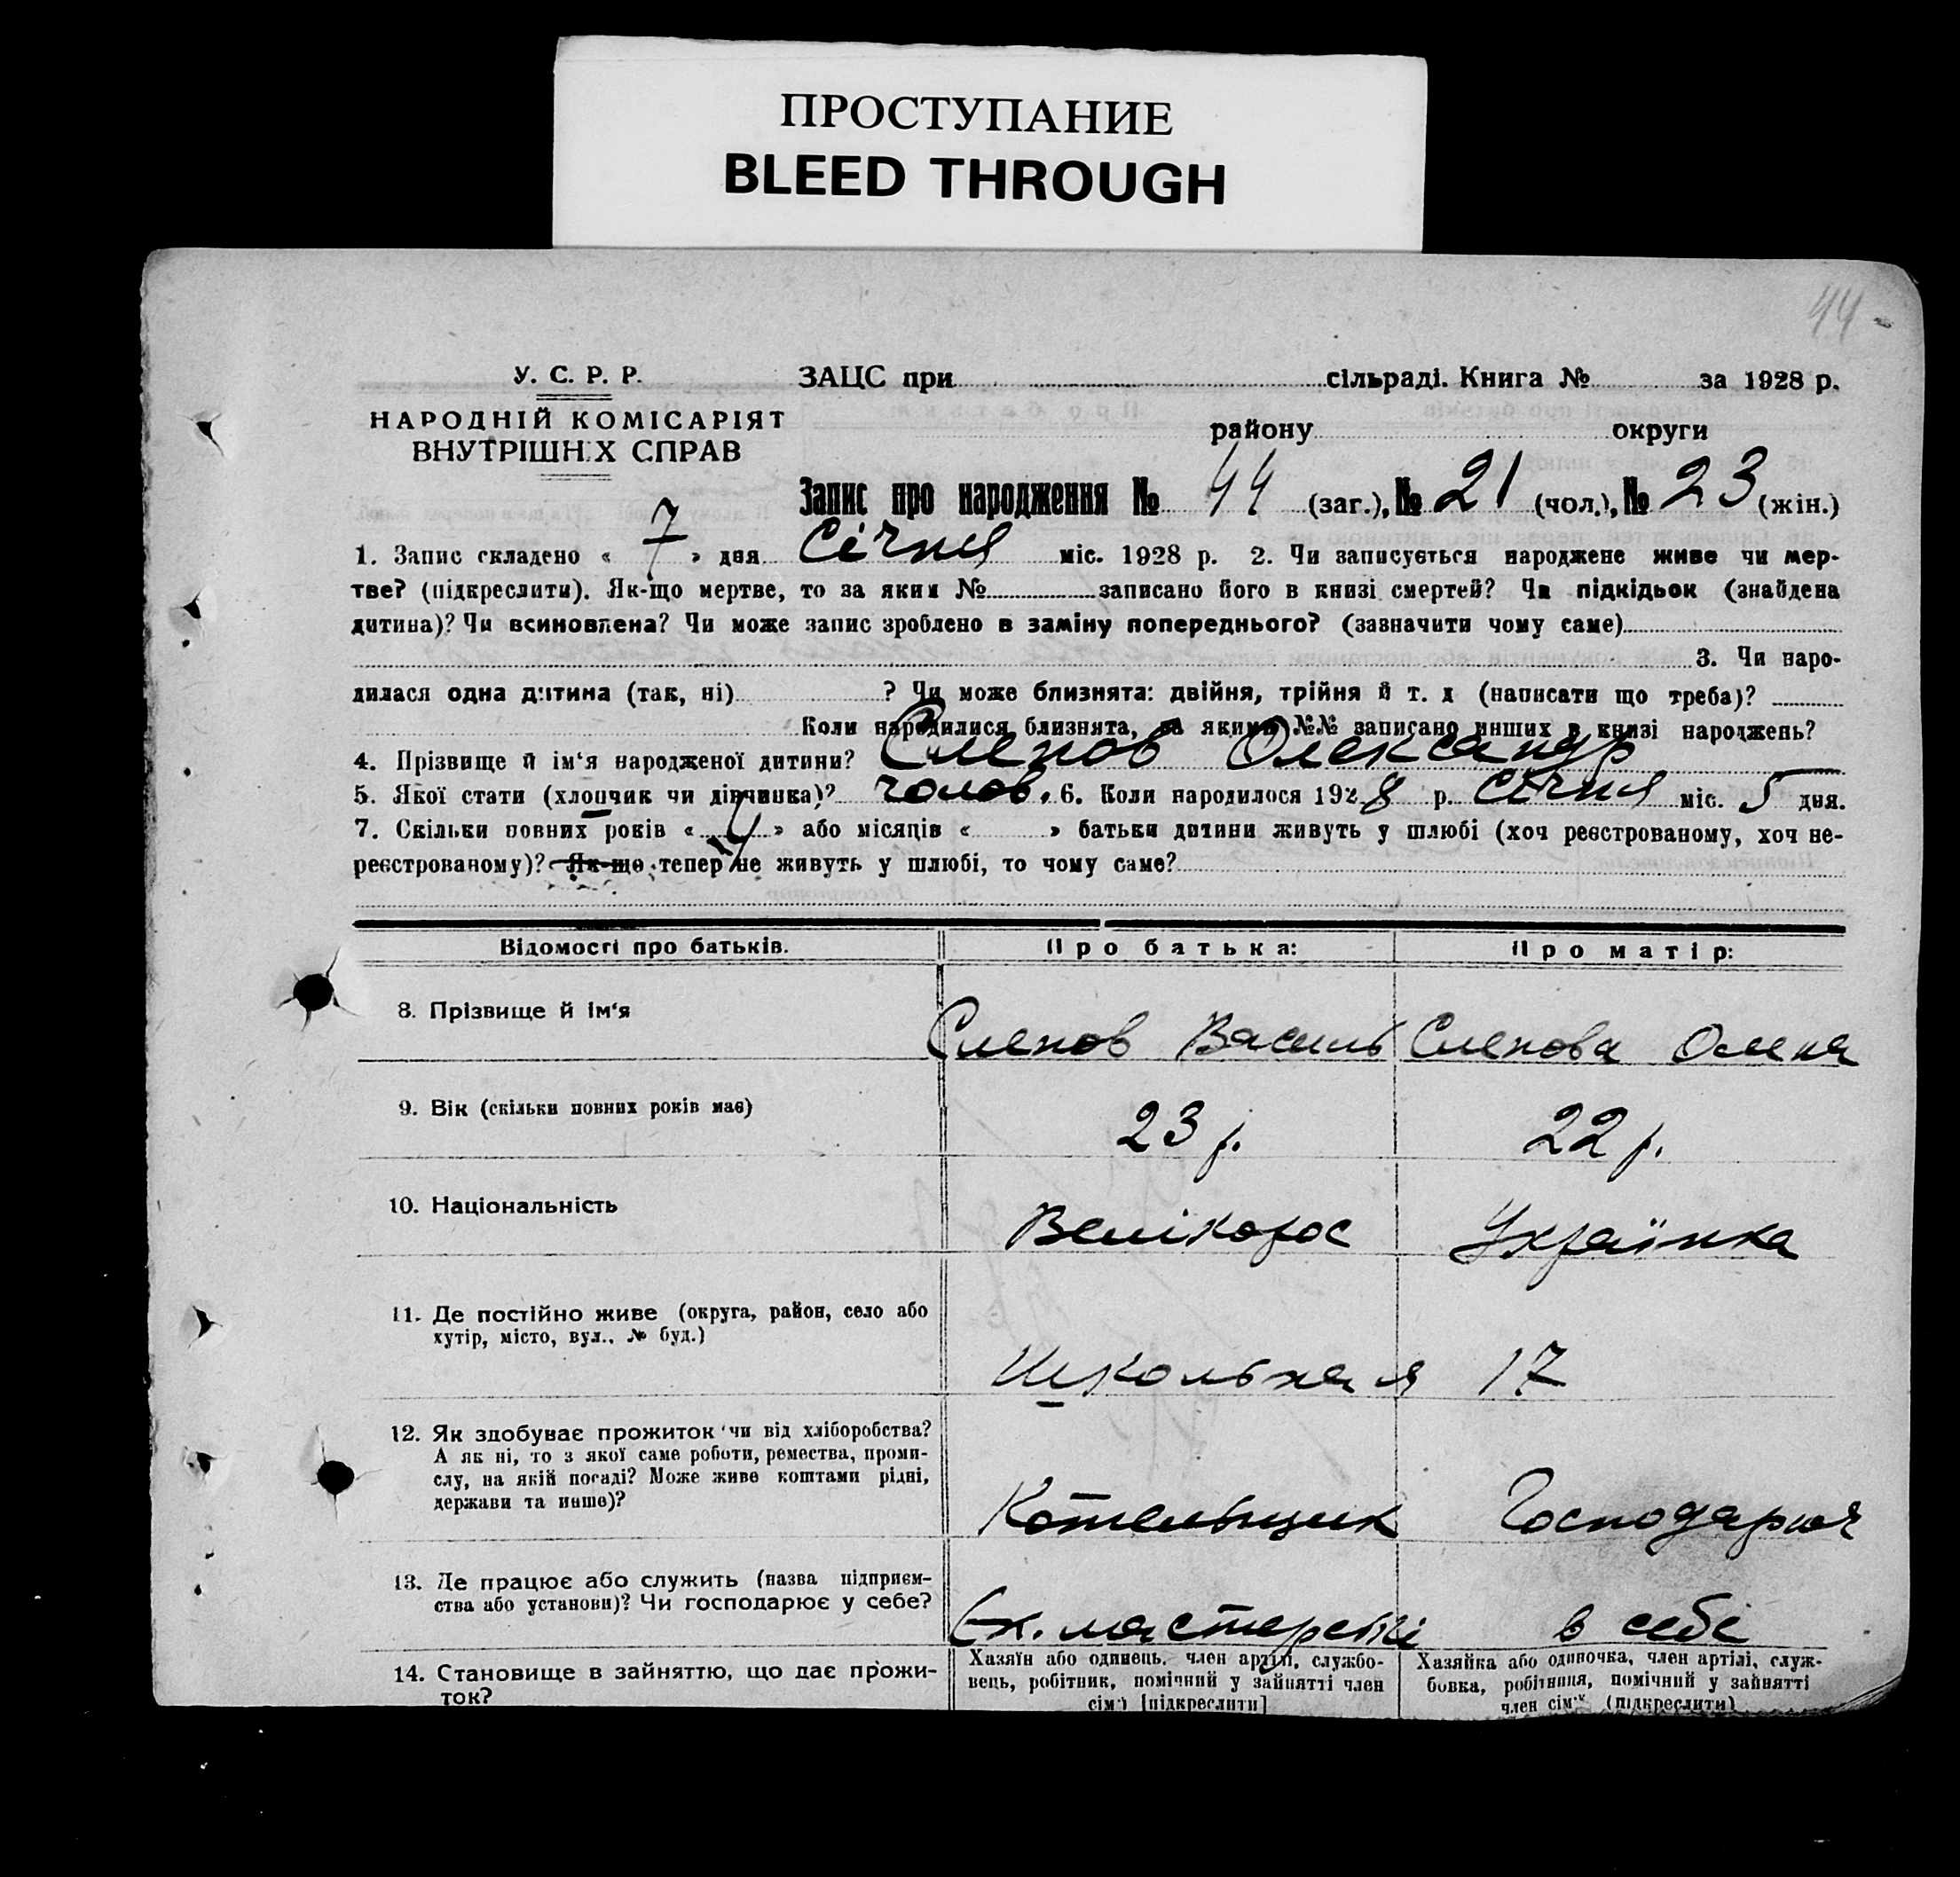 ПРОСТУПАНИЕ
BLEED THROUGH
44
У. С. Р. Р.
НАРОДНІЙ КОМІСАРІЯТ
ВНУТРІШНІХ СПРАВ
ЗАЦС при сільраді. Книга № за 1928 р.
району округи
Запис про народження № 44 (заг.), № 21 (чол.), № 23 (жін.)
1. Запис складено « 7 » дня Січня міс. 1928 р. 2. Чи записується народжене живе чи мер-
тве? (підкреслити). Як-що мертве, то за яким № записано його в книзі смертей? Чи підкідьок (знайдена
дитина)? Чи всиновлена? Чи може запис зроблено в заміну попереднього? (зазначити чому саме)
3. Чи наро-
дилася одна дитина (так, ні) ? Чи може близнята: двійня, трійня й т. д (написати що треба)?
Коли народилися близнята, за якими №№ записано инших в книзі народжень?
4. Прізвище й ім‘я народженої дитини? Слепов Олександр
5. Якої стати (хлопчик чи дівчинка)? чолов. 6. Коли народилося 1928 р. Січня міс. 5 дня.
7. Скільки повних років « 4 » або місяців « » батьки дитини живуть у шлюбі (хоч реєстрованому, хоч не-
реєстрованому)? Як-що тепер не живуть у шлюбі, то чому саме?
Відомості про батьків. Про батька: Про матір:
8. Прізвище й ім‘я Слепов Василь Слепова Олена
9. Вік (скільки повних років має) 23 р. 22 р.
10. Національність Велікорос Українка
11. Де постійно живе (округа, район, село або
хутір, місто, вул., № буд.)
Школьная 17
12. Як здобуває прожиток чи від хліборобства?
А як ні, то з якої саме роботи, ремества, проми-
слу, на якій посаді? Може живе коштами рідні,
держави та инше)?
Котельщик Господарює
13. Де працює або служить (назва підприєм-
ства або установи)? Чи господарює у себе?
мастерські в себі
14. Становище в зайняттю, що дає прожи-
ток?
Хазяїн або одинець, член артілі, службо-
вець, робітник, помічний у зайнятті член
сім'ї [підкреслити]
Хазяйка або одиночка, член артілі, служ-
бовка, робітниця, помічний у зайнятті
член сім'ї (підкреслити)